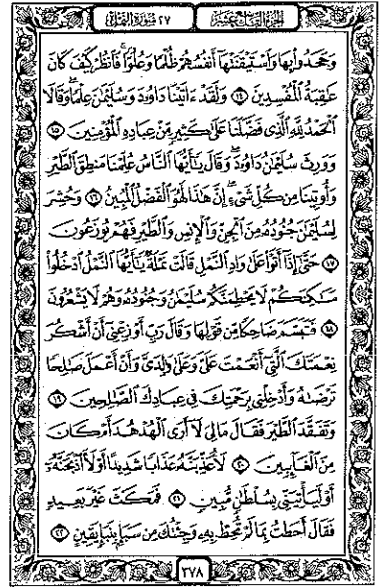 الجزء التاسع عشر
٢٧ سورة النمل
وَجَحَدُوا۟ بِهَا وَٱسْتَيْقَنَتْهَآ أَنفُسُهُمْ ظُلْمًا وَعُلُوًّا ۚ فَٱنظُرْ كَيْفَ كَانَ
عَٰقِبَةُ ٱلْمُفْسِدِينَ ۝١٤ وَلَقَدْ ءَاتَيْنَا دَاوُۥدَ وَسُلَيْمَٰنَ عِلْمًا ۖ وَقَالَا
ٱلْحَمْدُ لِلَّهِ ٱلَّذِى فَضَّلَنَا عَلَىٰ كَثِيرٍ مِّنْ عِبَادِهِ ٱلْمُؤْمِنِينَ ۝١٥
وَوَرِثَ سُلَيْمَٰنُ دَاوُۥدَ ۖ وَقَالَ يَٰٓأَيُّهَا ٱلنَّاسُ عُلِّمْنَا مَنطِقَ ٱلطَّيْرِ
وَأُوتِينَا مِن كُلِّ شَىْءٍ ۖ إِنَّ هَٰذَا لَهُوَ ٱلْفَضْلُ ٱلْمُبِينُ ۝١٦ وَحُشِرَ
لِسُلَيْمَٰنَ جُنُودُهُۥ مِنَ ٱلْجِنِّ وَٱلْإِنسِ وَٱلطَّيْرِ فَهُمْ يُوزَعُونَ
۝١٧ حَتَّىٰٓ إِذَآ أَتَوْا۟ عَلَىٰ وَادِ ٱلنَّمْلِ قَالَتْ نَمْلَةٌ يَٰٓأَيُّهَا ٱلنَّمْلُ ٱدْخُلُوا۟
مَسَٰكِنَكُمْ لَا يَحْطِمَنَّكُمْ سُلَيْمَٰنُ وَجُنُودُهُۥ وَهُمْ لَا يَشْعُرُونَ
۝١٨ فَتَبَسَّمَ ضَاحِكًا مِّن قَوْلِهَا وَقَالَ رَبِّ أَوْزِعْنِىٓ أَنْ أَشْكُرَ
نِعْمَتَكَ ٱلَّتِىٓ أَنْعَمْتَ عَلَىَّ وَعَلَىٰ وَٰلِدَىَّ وَأَنْ أَعْمَلَ صَٰلِحًا
تَرْضَىٰهُ وَأَدْخِلْنِى بِرَحْمَتِكَ فِى عِبَادِكَ ٱلصَّٰلِحِينَ ۝١٩
وَتَفَقَّدَ ٱلطَّيْرَ فَقَالَ مَا لِىَ لَآ أَرَى ٱلْهُدْهُدَ أَمْ كَانَ
مِنَ ٱلْغَآئِبِينَ ۝٢٠ لَأُعَذِّبَنَّهُۥ عَذَابًا شَدِيدًا أَوْ لَأَا۟ذْبَحَنَّهُۥٓ
أَوْ لَيَأْتِيَنِّى بِسُلْطَٰنٍ مُّبِينٍ ۝٢١ فَمَكَثَ غَيْرَ بَعِيدٍ
فَقَالَ أَحَطتُ بِمَا لَمْ تُحِطْ بِهِۦ وَجِئْتُكَ مِن سَبَإٍۭ بِنَبَإٍ يَقِينٍ ۝٢٢
٣٧٨